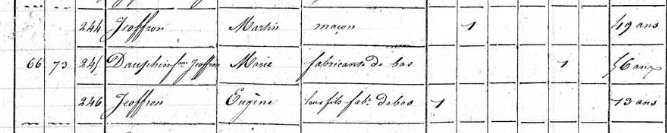 244 Jeoffron Martin maçon 1 49 ans
66 73 245 Dauphin fme Jeoffron Marie fabricante de bas 1 56 ans
246 Jeoffron Eugène fils fabt. de bas 1 13 ans